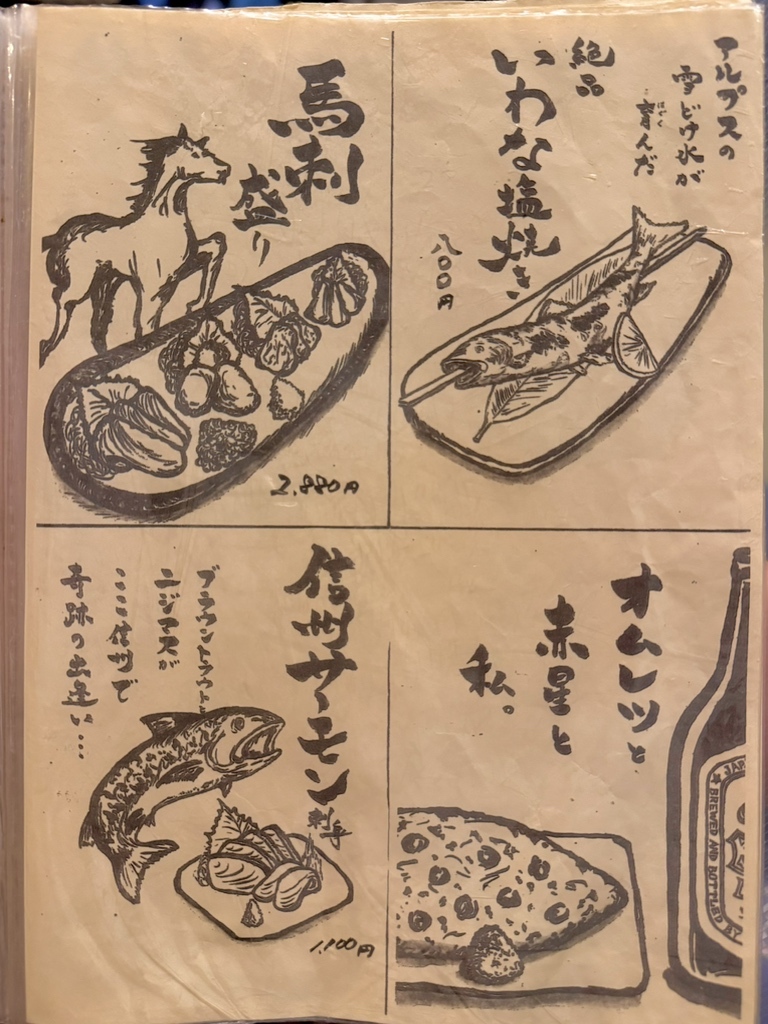 アルプスの
雪どけ水が
育んだ
はぐく
絶品
いわな塩焼き
八〇〇円
馬刺
盛り
2,880円
オムレツと
赤星と
私。
BREWED AND BOTTLED
信州サーモン
刺身
ブラウントラウトと
ニジマスが
ここ信州で
奇跡の出逢い…
1,100円